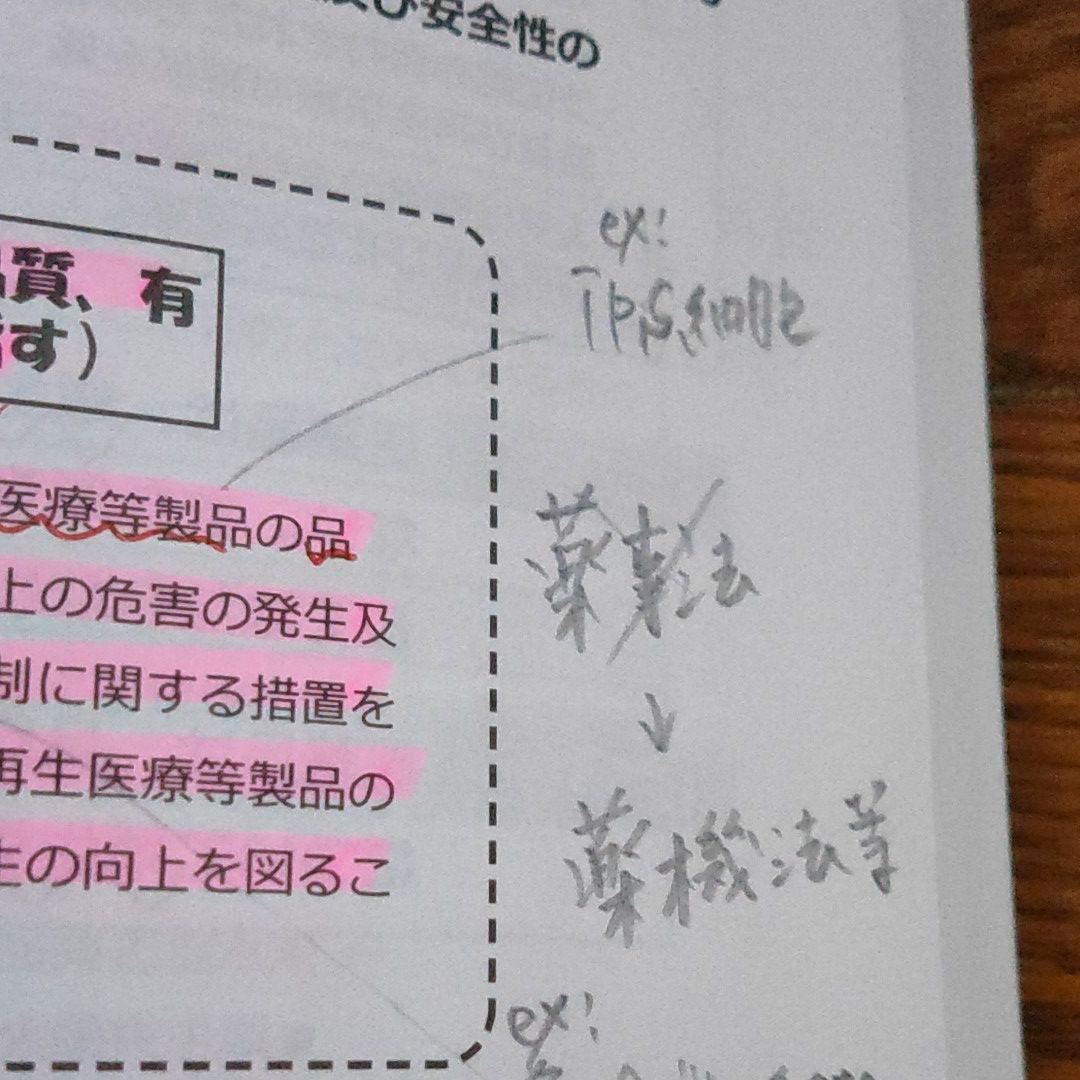 及び安全性の
質、有
す）
医療等製品の品
上の危害の発生及
制に関する措置を
再生医療等製品の
生の向上を図るこ
ex:
iPS細胞
薬事法
↓
薬機法等
ex: